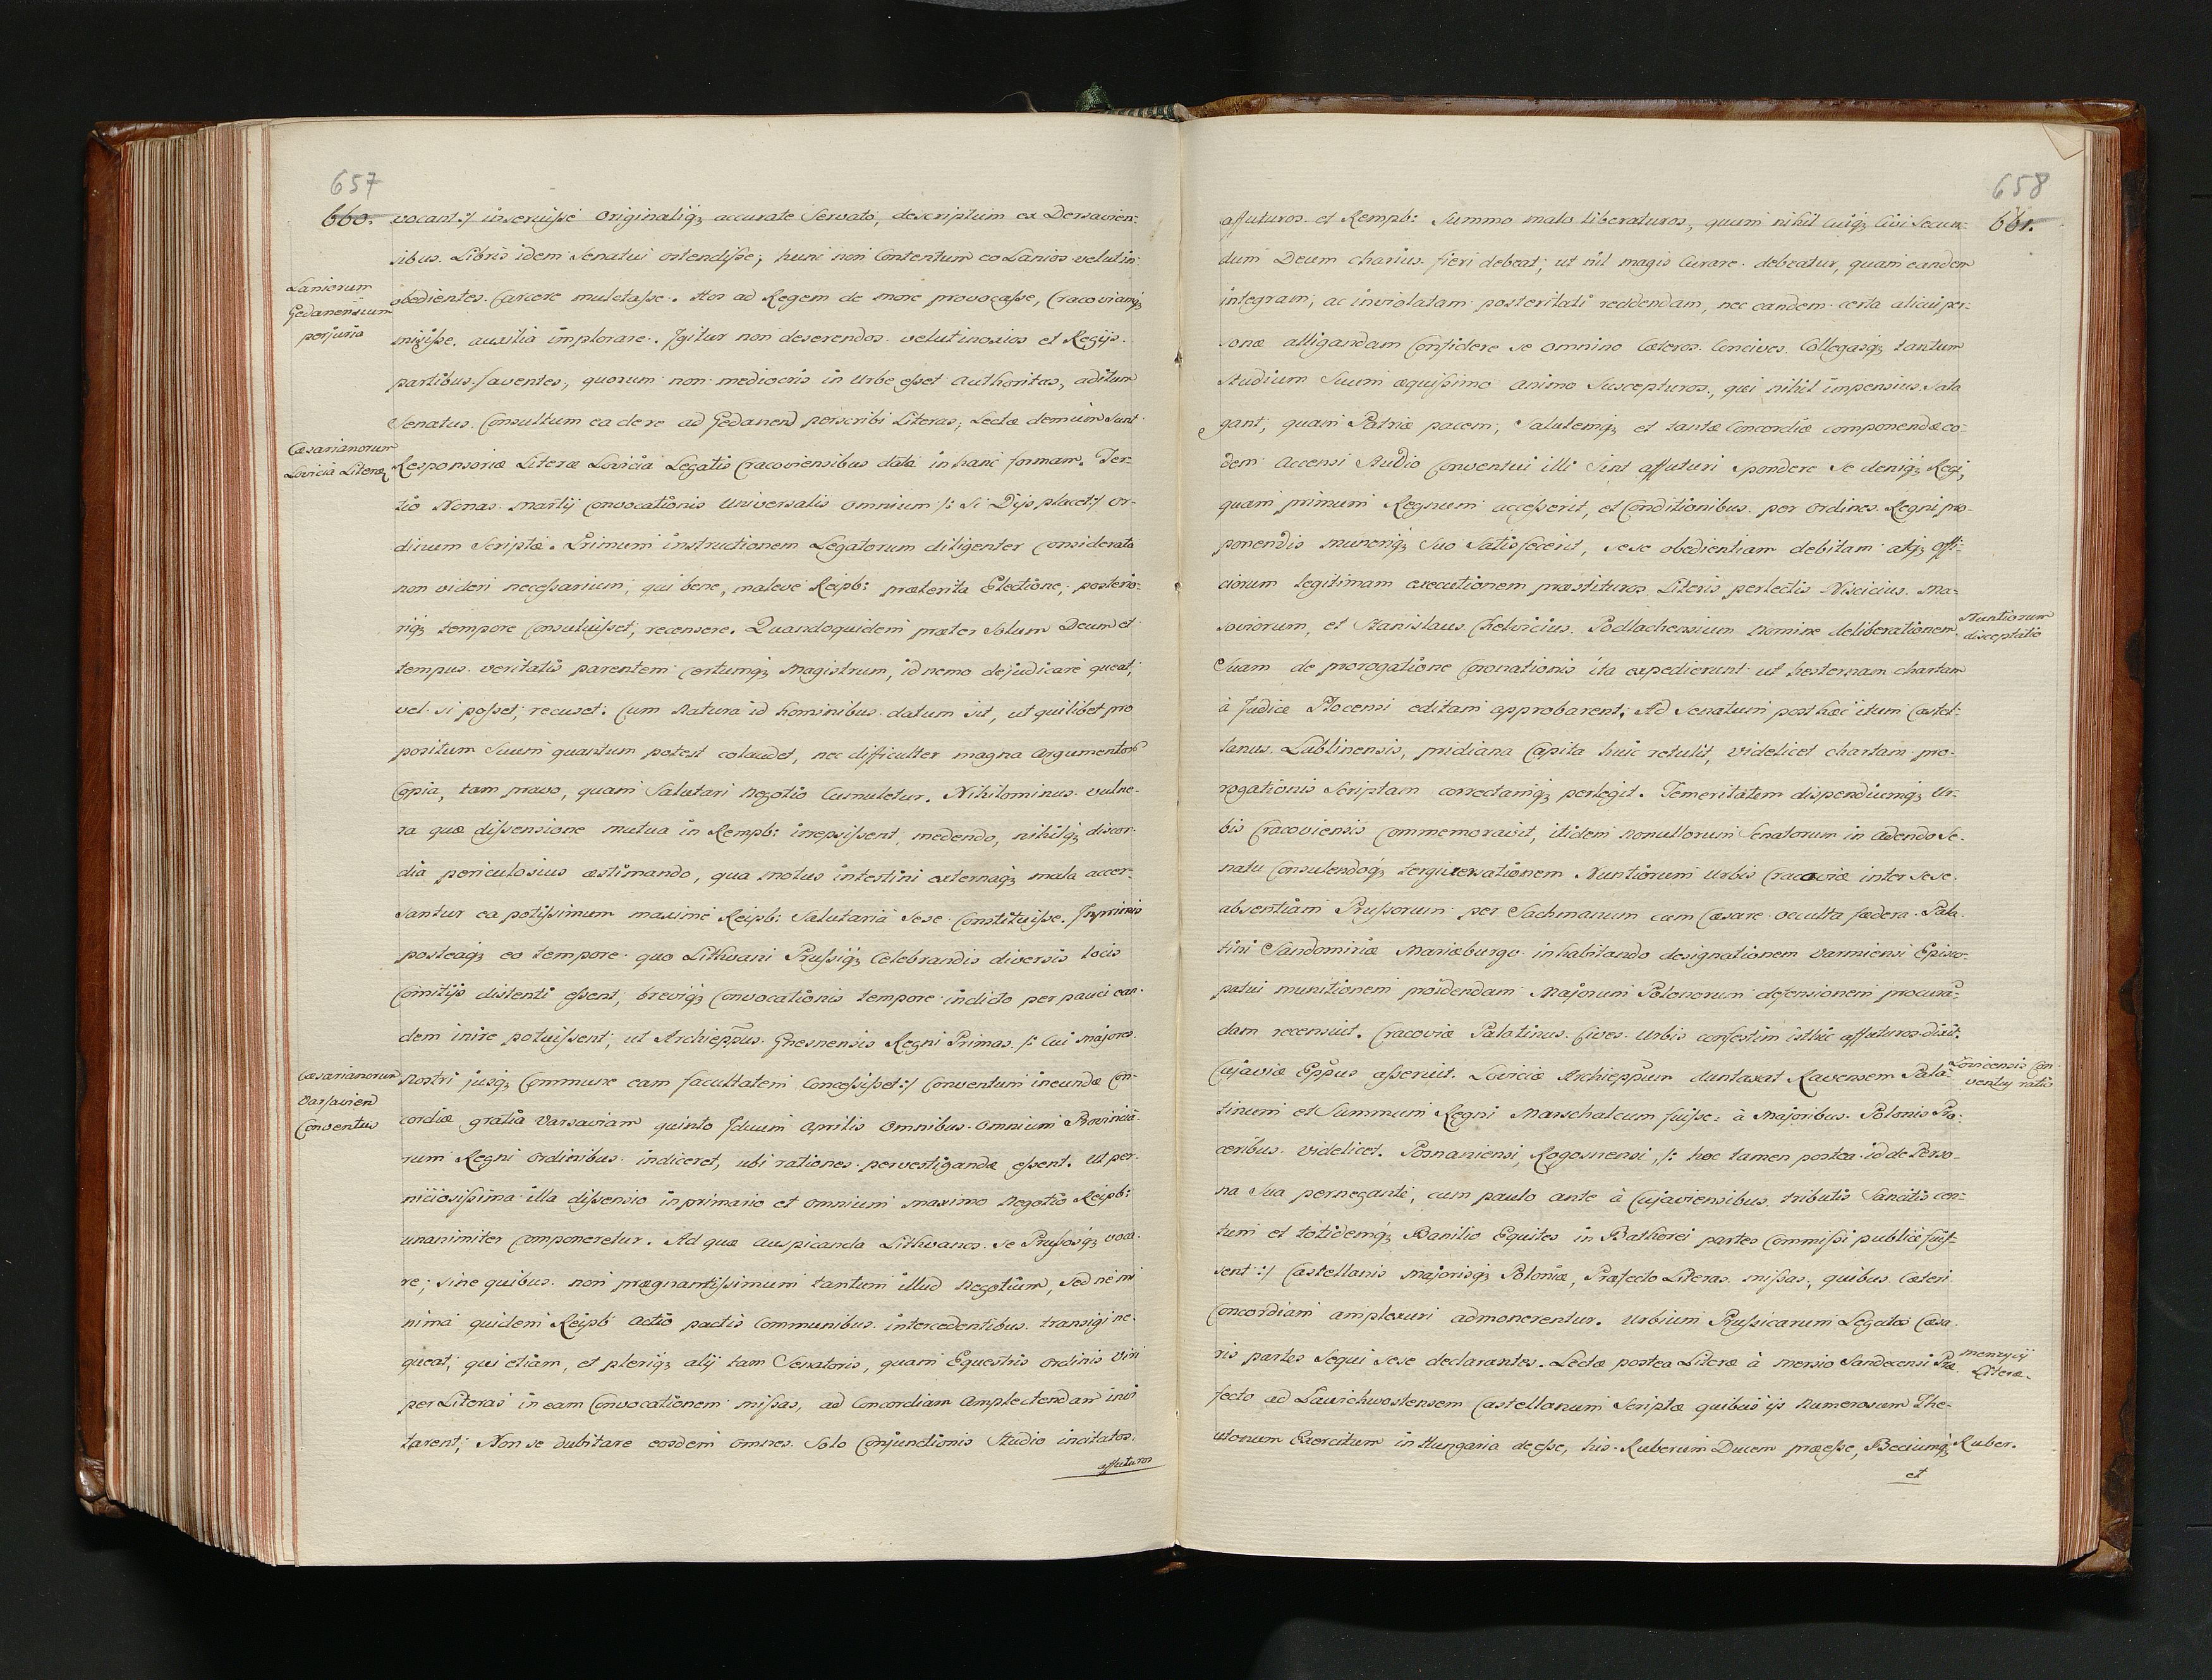 657
660.
vocant:/ inseruisse Originaliq; accurate Servato, descriptum ex Dersavien-
sibus Libris idem Senatui ostendisse; hunc non Contentum eo Lanios velut in-
Laniorum
Gedanensium
perjuria
obedientes Carcere muletasse. Hos ad Regem de more provocasse, Cracoviamq;
misisse, auxilia implorare. Igitur non deserendos velut inoxios et Regijs
partibus faventes, quorum non mediocris in Urbe esset Authoritas, aditum
Senatus Consultum ea de re ad Gedanen perscribi Literas; Lectæ demum sunt
Cæsarianorum
Lovicia Literæ
Responsoriæ Literæ Lovicia Legatis Cracoviensibus data in hanc formam. Ter-
tio Nonas Martij Convocationis Universalis omnium /: si Dijs placet:/ or-
dinum Scripta. Primum instructionem Legatorum diligenter Considerata
non videri necessarium, qui bene, maleve Reipb: præterita Electione, posterio-
riq; tempore Consuluisset, recensere. Quandoquidem præter solum Deum et
tempus veritatis parentem certumq; Magistrum, id nemo dejudicare queat;
vel si posset, recuset: Cum Natura id hominibus datum sit, ut quilibet pro
positum Suum quantum potest colaudet, nec difficulter magna argumentor
Copia, tam pravo, quam Salutari Negotio Cumuletur. Nihilominus vulne-
ra quæ dissensione mutua in Rempb: irrepsissent, medendo, nihilq; discor-
dia periculosius æstimando, qua motus intestini externaq; mala accer-
santur ea potissimum maxime Reipb: Salutaria Sese Constituisse. Inprimis
posteaq; eo tempore quo Lithvani Prussiq; Celebrandis diversis locis
Comitijs distenti essent, breviq; Convocationis tempore indicto per pauci ean-
dem inire potuissent; ut Archieppus Gnesnensis Regni Primas /: Cui majores
Cæsarianorum
Varsavien
Conventus
Nostri jusq; Commune eam facultatem Concessisset:/ Conventum ineundæ Con-
cordiæ gratia Varsaviam quinto Iduum Aprilis Omnibus Omnium Provincia-
rum Regni Ordinibus indiceret, ubi rationes pervestigandæ essent. Ut per-
niciosissima illa dissensio in primario et omnium maximo Negotio Reipb:
unanimiter componeretur. Ad quæ auspicanda Lithvanos se Prussosq; voca-
re; sine quibus non prægnantissimum tantum illud Negotium, sed ne mi
nima quidem Reipb Actio pactis Communibus intercedentibus transigi ne-
queat; qui etiam, et pleriq; alij tam Senatoris, quam Equestris ordinis viri
per Literas in eam Convocationem missas, ad Concordiam Amplectendam invi
tarent; Non se dubitare eosdem omnes Solo Conjunctionis Studio incitatos
affuturos
658
661.
affuturos et Rempb: Summo malo liberaturos, quum nihil cuiq; Civi Secun-
dum Deum charius fieri debeat; ut nil magis Curare debeatur, quam eandem
integram, ac inviolatam posteritati reddendam, nec eandem certa alicui per-
sonæ alligandam Considere se omnino Cæteros Concives Collegasq; tantum
Studium Suum æquissimo animo Suscepturos, qui nihil impensius Sata
gant; quam Patriæ pacem, Salutemq; et tantæ Concordiæ componendæ eo-
dem Accensi Studio Conventui illi Sint affuturi spondere se deniq; Regi,
quam primum Regnum accesserit, et Conditionibus per ordines Regni pro-
ponendis muneriq; Suo Satisfecerit, sese obedientiam debitam atq; offi-
ciorum legitimam executionem præstituros. Literis perlectis Niscicius Ma-
Nuntiorum
disceptatio
soviorum, et Stanislaus Chelvicius Podlachensium Nomine deliberationem
Suam de prorogatione Coronationis ita expedierunt ut hesternam chartam
à Judice Plocensi editam approbarent; Ad Senatum post hæc itum Castel-
lanus Lublinensis, pridiana Capita huic retulit, videlicet chartam pro-
rogationis Scriptam correctamq; perlegit. Temeritatem dispendiumq; Ur-
bis Cracoviensis Commemoravit, itidem Nonullorum Senatorum in adendo Se-
natu Consulendoq; tergiversationem Nuntiorum Urbis Cracoviæ inter sese
absentiam Prussorum per Sachmanum cum Cæsare occulta fædera Pala-
tini Sandomiriæ Mariæburgo inhabitando designationem Varmiensi Episco-
patui munitionem providendam Majorum Polonorum defensionem procurā-
dam recensuit. Cracoviæ Palatinus Cives Urbis confestim isthic affuturos dixit.
Lovicensis Con-
ventus ratio
Cujaviæ Eppus asseruit. Loviciæ Archieppum duntaxat Ravensem Pala-
tinum et Summum Regni Marschalcum fuisse: à Majoribus Polonis Pro-
ceribus videlicet. Posnaniensi, Rogosnensi, /: hoc tamen postea id de Perso-
na Sua pernegante, cum paulo ante à Cujaviensibus tributis Sancitis cen-
tum et totidemq; Banilio Equites in Bathorei partes Commissi publice fuis-
sent:/ Castellanis Majorisq; Poloniæ, Præfecto Literas missas, quibus Cæteri
Concordiam amplexuri admonerentur. Urbium Prussicarum Legatos Cæsa-
ris partes Sequi sese declarantes. Lectæ postea Literæ à Mersio Sandecensi Præ-
Literæ
fecto ad Lavichwostensem Castellanum Scriptæ quibus ijs Numerosum The-
utonum Exercitum in Hungaria deesse, his Ruberum Ducem præesse, Beciumq;
Ruber.
et